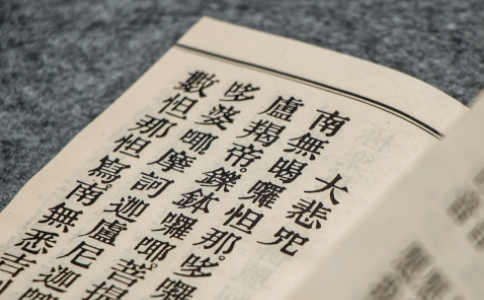 大悲咒
南無喝囉怛那。哆囉
盧羯帝。爍鉢囉㖿。菩提
哆婆㖿。摩訶迦盧尼迦
數怛那怛寫。南無悉吉